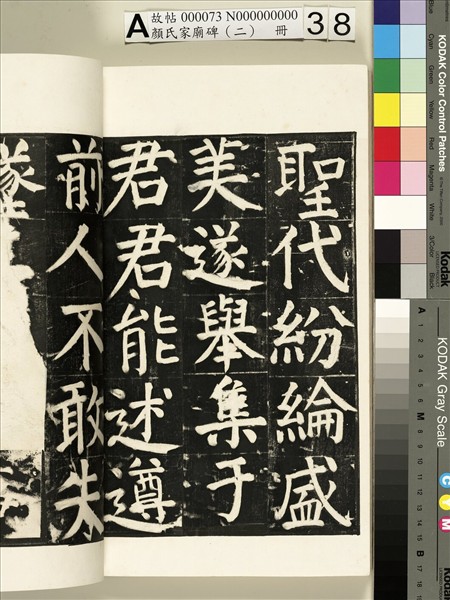 A 故帖 000073 N000000000 38
顏氏家廟碑（二） 冊
聖代紛綸盛
美遂舉集于
君君能述遵
前人不敢失
墜
KODAK Color Control Patches
Blue
Cyan
Green
Yellow
Red
Magenta
White
3/Color
Black
Kodak
KODAK Gray Scale
A 1 2 3 4 5 6 M 8 9 10 11 12 13 14 15 B 17 18
C Y M
Kodak